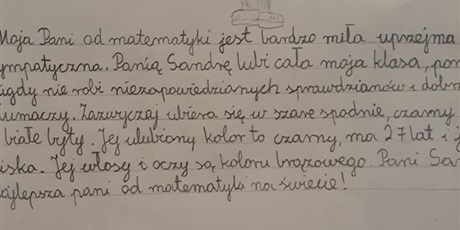 Moja Pani od matematyki jest bardzo miła uprzejma
ympatyczna. Panią Sandrę lubi cała moja klasa, pon
igdy nie robi niezapowiedzianych sprawdzianów i dobrz
umaczy. Zazwyczaj ubiera się w szare spodnie, czarny
białe byty. Jej ulubiony kolor to czarny, ma 27 lat i j
iska. Jej włosy i oczy są koloru brązowego. Pani San
ajlepsza pani od matematyki na świecie!